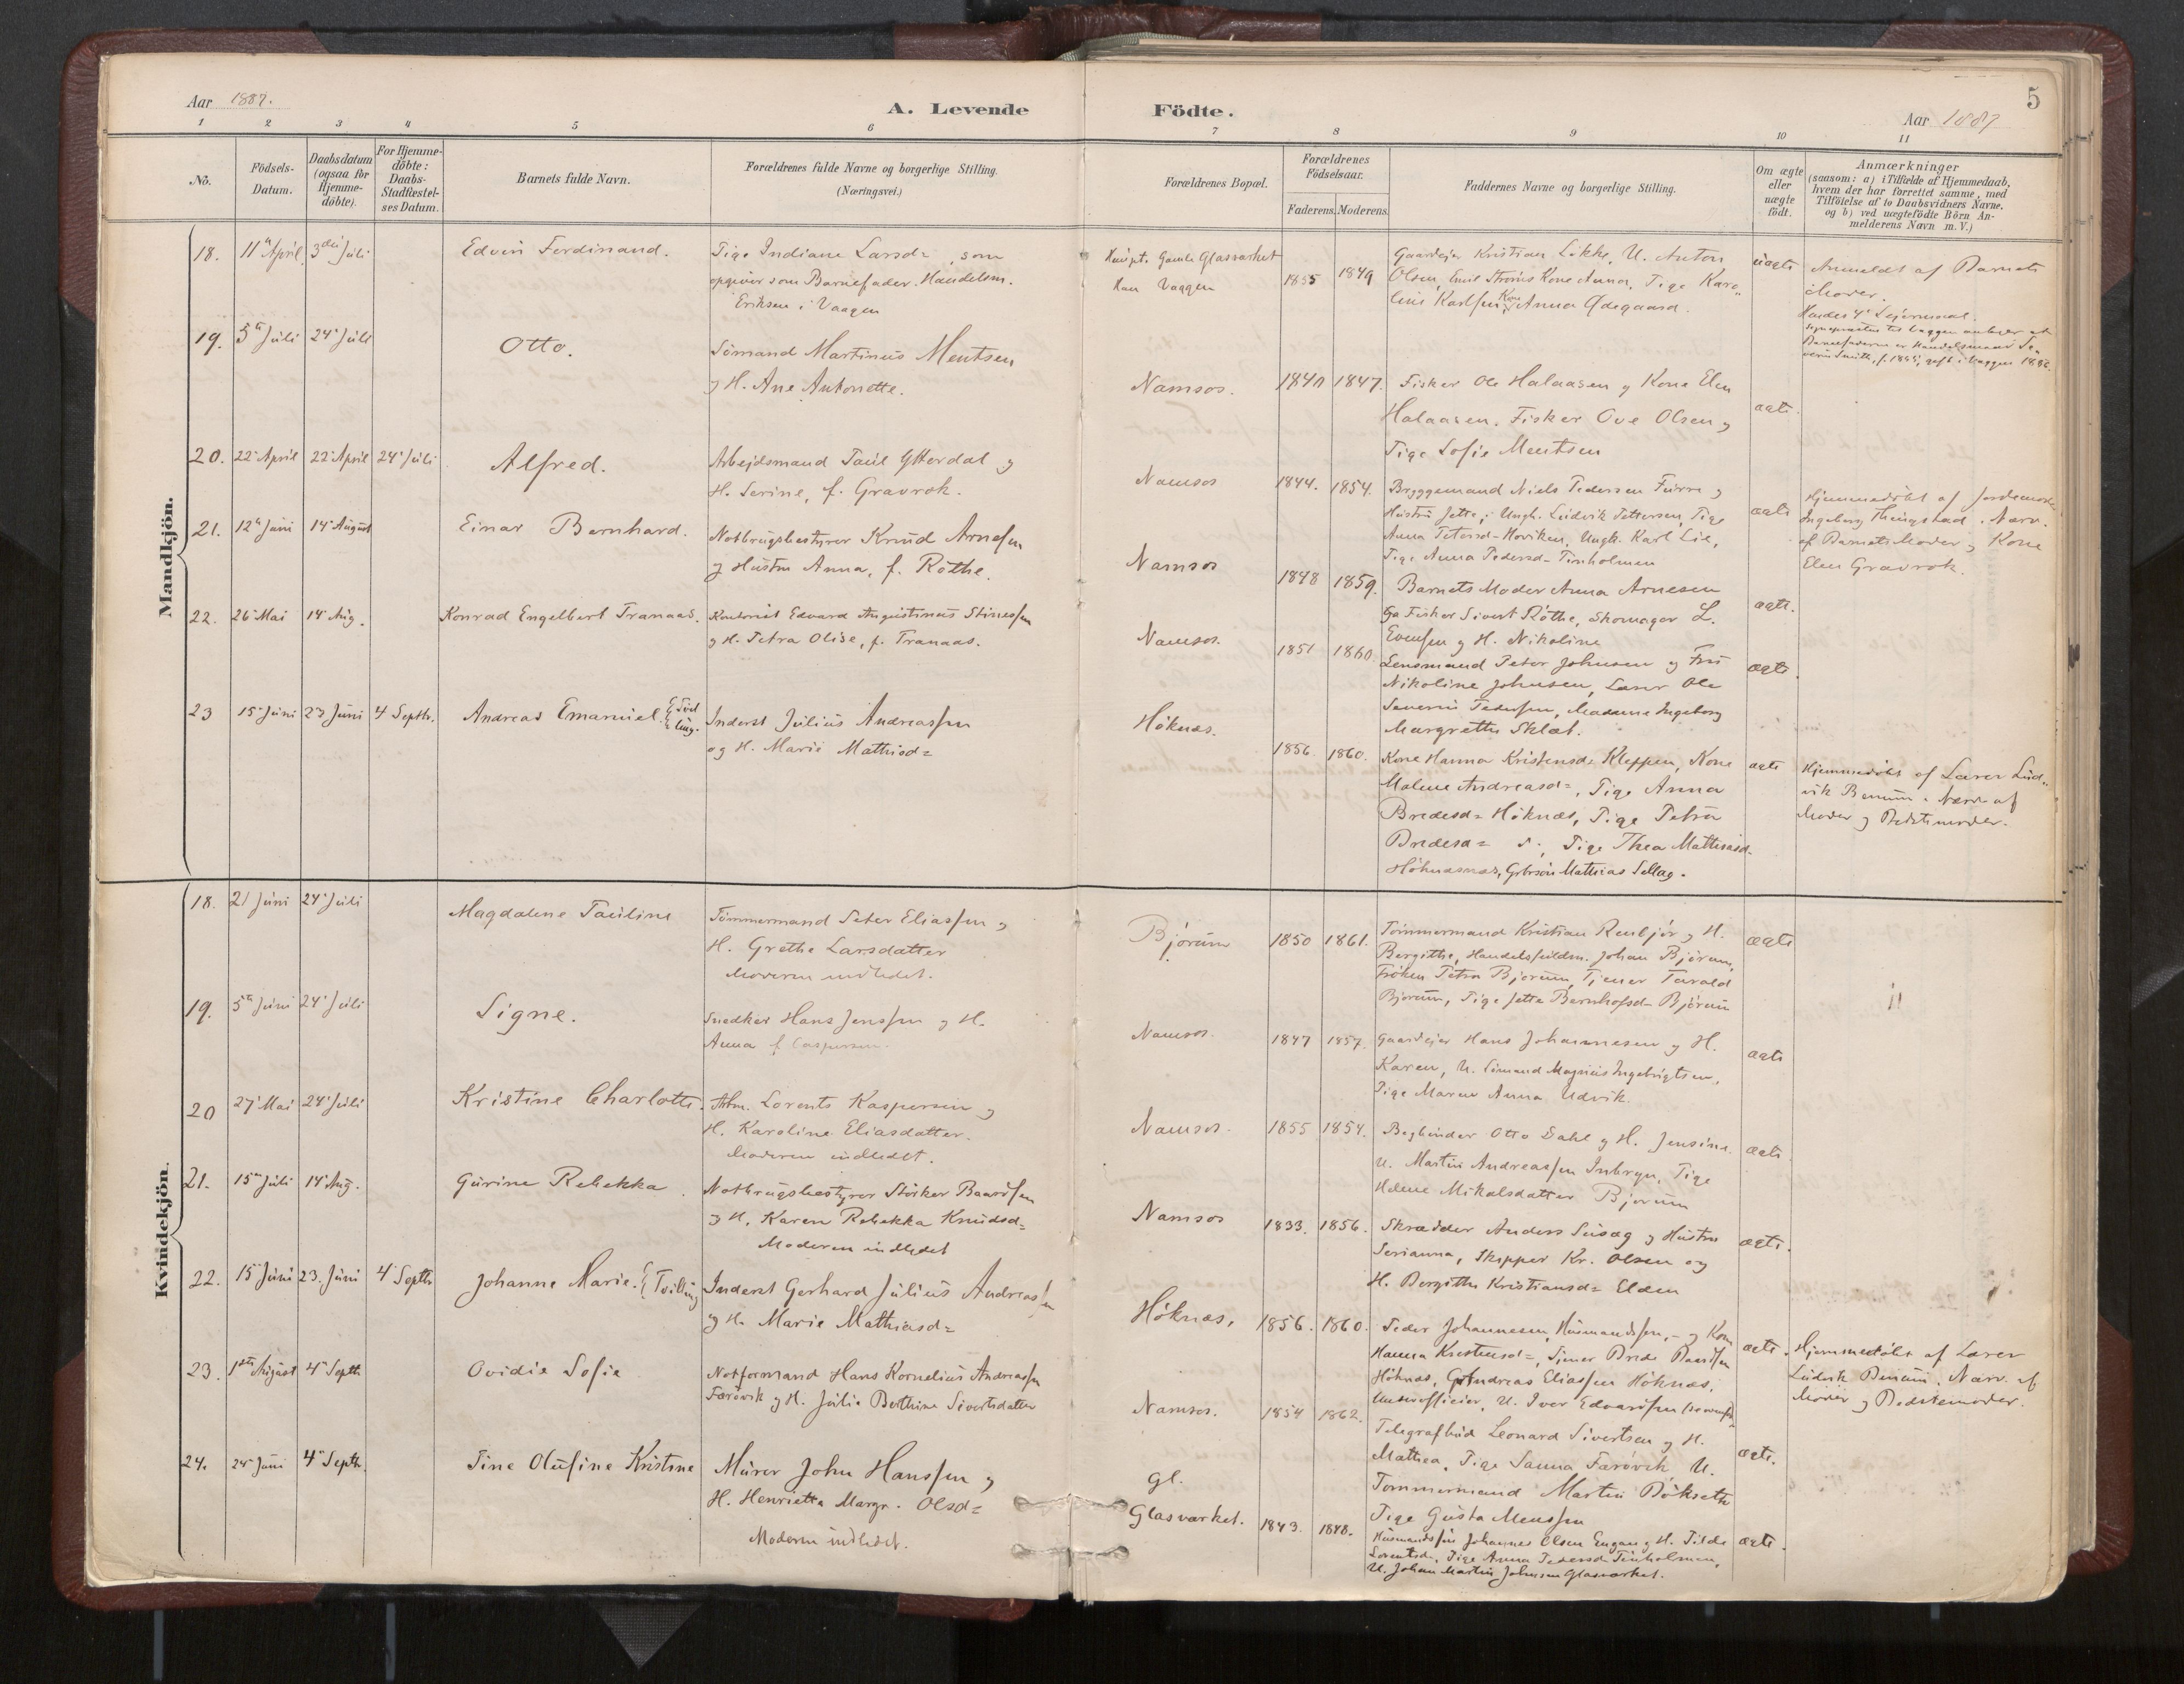 Aar 1887.
A. Levende
Födte.
5
Aar 1887
1 2 3 4 5 6 7 8 9 10 11
No.
Födsels-Datum.
Daabsdatum (ogsaa for Hjemme-döbte).
For Hjemme-döbte: Daabs-Stadfæstel-ses Datum.
Barnets fulde Navn.
Forældrenes fulde Navne og borgerlige Stilling. (Næringsvei.)
Forældrenes Bopæl.
Forældrenes Födselsaar.
Faderens. Moderens.
Faddernes Navne og borgerlige Stilling.
Om ægte eller uægte födt.
Anmærkninger
(saasom: a) i Tilfælde af Hjemmedaab,
hvem der har forrettet samme, med
Tilföielse af to Daabsvidners Navne,
og b) ved uægtefödte Börn An-
melderens Navn m.V.)
Mandkjön.
18. 11te April 3die Juli Edvin Ferdinand.
Pige Indiane Larsd=, som
opgiver som Barnefader Handelsm.
Eriksen i Vaagen
Gamle Glasværket
Han Vaagen
1855 1849
Gaardejer Kristian Lökke, U. Anton
Olsen, Emil Ströms Kone Anna, Pige Karo„
line Karlsen, Kone Anna Ødegaard.
uægte
Anmeldt af Barnets
Moder.
Hendes 4de Lejermaal.
19. 5te Juli 24de Juli Otto.
Sömand Martinus Mentsen
og H. Ane Antonette.
Namsos. 1847.
Fisker Ole Halaasen og Kone Elen
Halaasen. Fisker Ove Olsen og
Pige Sofie Mentsen
ægte.
20. 22de April 22de April 24de Juli Alfred.
Arbejdsmand Paul Ytterdal og
H. Serine, f. Gravrok.
Namsos 1844. 1854.
Bryggemand Niels Pedersen Furre og
Hustru Jette; Ungk. Ludvik Pettersen, Pige
Anna Petersd= Hoviken, Ungk. Karl Lie,
Pige Anna Pedersd=
ægte
Hjemmedöbt af Jordemoder
Ingeborg Thingstad. Nærv.
af Barnets Moder og Kone
Elen Gravrok.
21. 12te Juni 14de August Einar Bernhard.
Notbrugsbestyrer Knud Arnesen
og Hustru Anna, f. Röthe.
Namsos 1848 1859.
Barnets Moder Anna Arnesen
Fisker Sivert Röthe, Skomager L.
Evensen og H. Nikoline
ægte.
22. 26de Mai 14de Aug. Konrad Engelbert Tranaas.
Kontorist Edvard Augustinus Stinessen
og H. Petra Olise, f. Tranaas.
Namsos. 1851 1860.
Lensmand Peter Johnsen og Fru
Nikoline Johnsen, Lærer Ole
Severin Pedersen, Madame Ingeborg
Margrethe Sklet.
ægte.
23 15de Juni 23de Juni 4de Septbr. Andreas Emanuel. Tvilling.
Inderst Julius Andreassen
og H. Marie Mathisd=
Höknæs. 1856. 1860.
Kone Hanna Kristensd= Kleppen, Kone
Malene Andreasd=, Pige Anna
Bredesd= Höknæs, Pige Petra
Bredesd= s., Pige Thea Mathiasd.
Höknæsnæs, Grbrsön Mathias Sellæg.
ægte
Hjemmedöbt af Lærer Lud„
vik Benum. Nærv. af
Moder og Bedstemoder.
Kvindekjön.
18. 21 Juni 24de Juli Magdalene Pauline
Tömmermand Peter Eliassen og
H. Grethe Larsdatter
Moderen indledet.
Björum 1850 1861.
Tömmermand Kristian Renbjör og H.
Bergithe, Handelsfuldm. Johan Björum,
Fröken Petra Björum, Tjener Tarald
Björum, Pige Jette Bernhofsd= Björum
ægte
19. 5te Juni 24de Juli Signe.
Snedker Hans Jenssen og H.
Anna f. Caspersen.
Namsos. 1847 1857.
Gaardejer Hans Johannesen og H.
Karen, U. Sömand Magnus Ingebrigtsen,
Pige Maren Anna Udvik.
ægte
20 27de Mai 24de Juli Kristine Charlotte.
Arbm. Lorents Kaspersen og
H. Karoline Eliasdatter.
Moderen indledet.
Namsos. 1855 1854.
Bogbinder Otto Dahl og H. Jensine.
U. Martin Andreassen Inbryn, Pige
Helene Mikalsdatter Björum
ægte.
21. 15de Juli 14de Aug. Gurine Rebekka.
Notbrugsbestyrer Störker Baardsen
og H. Karen Rebekka Knudsd=
Moderen indledet
Namsos 1833. 1856.
Skrædder Anders Susæg og Hustru
Serianna, Skipper Kr. Olsen og
H. Bergithe Kristiansd= Elden
ægte.
22. 15de Juni 23. Juni 4de Septbr Johanne Marie. Tvilling
Inderst Gerhard Julius Andreassen
og H. Marie Mathiasd=
Höknæs. 1856. 1860.
Peder Johannesen, Husmandssön, og Kone
Hanna Kristensd=, Tjener Brede Baardsen
Höknæs, Andreas Eliassen Höknæs,
Underofficier, U. Iver Edvardsen
ægte.
Hjemmedöbt af Lærer
Ludvik Benum. Nærv. af
Moder og Bedstemoder.
23. 1ste August 4de Septb Ovidie Sofie
Notformand Hans Kornelius Andreassen
Færövik og H. Julie Berthine Sivertsdatter
Namsos. 1854 1862.
Telegrafbud Leonard Sivertsen og H.
Mathea, Pige Sanna Færövik U.
Tömmermand Martin Bökseth
Pige Gusta Menssen
ægte.
24. 24de Juni 4de Septb. Tine Olufine Kristine
Murer John Hanssen og
H. Henrietta Margr. Olsd=
Moderen indledet.
Gl.
Glasværket. 1843. 1848.
Husmandssön Johannes Olsen Engan og H. Tilde
Lorentsd=, Pige Anna Pedersd=
U. Johan Martin Johnsen Glasværket.
ægte.